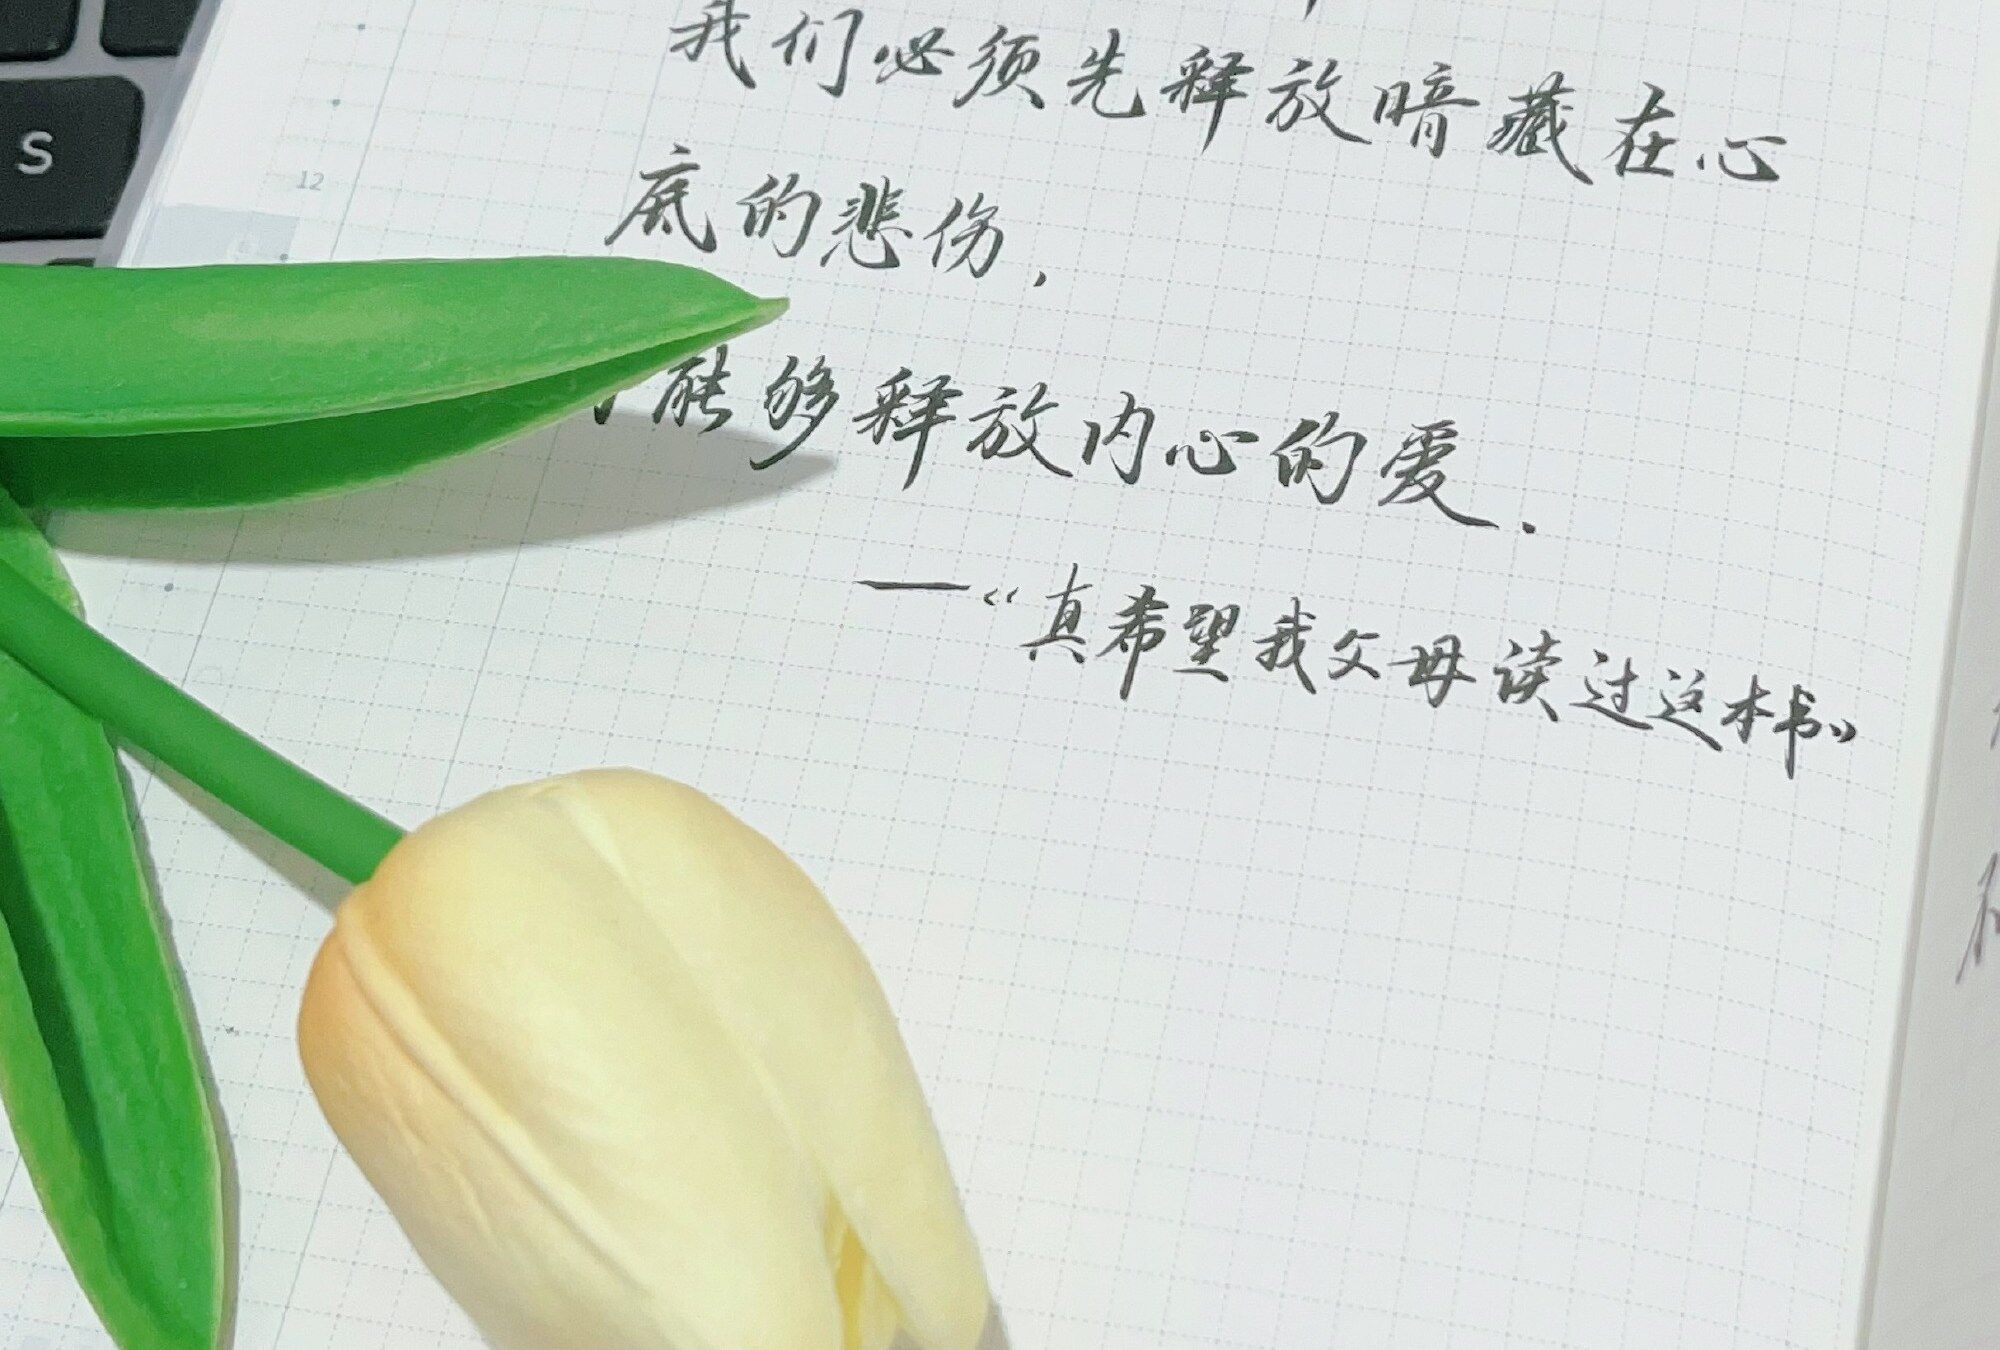 我们必须先释放暗藏在心
底的悲伤，
能够释放内心的爱.
—《真希望我父母读过这本书》
12
S